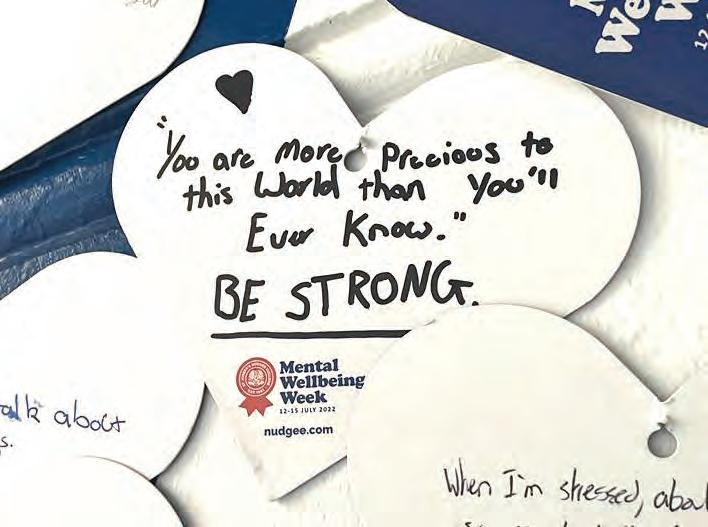 "You are more Precious to
this World than You'll
Ever Know."
BE STRONG.
Mental
Wellbeing
Week
12-15 JULY 2022
nudgee.com
We
12
alk about
s.
When I'm stressed, abou